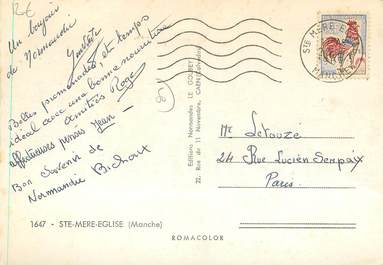 Un bonjour
de Normandie
Belles promenades, et temps
idéal avec une bonne nourriture
amitiés Roge
affectueuses pensées
Bon Souvenir de
Normandie Bichout
1647 - STE-MERE-EGLISE (Manche)
ROMACOLOR
Editions Normandes LE GOUBEY
22, Rue du 11 Novembre, CAEN (Calvados)
STE MERE-E
MANCHE
Me Letouzé
24 Rue Lucien Sempaix
Paris.